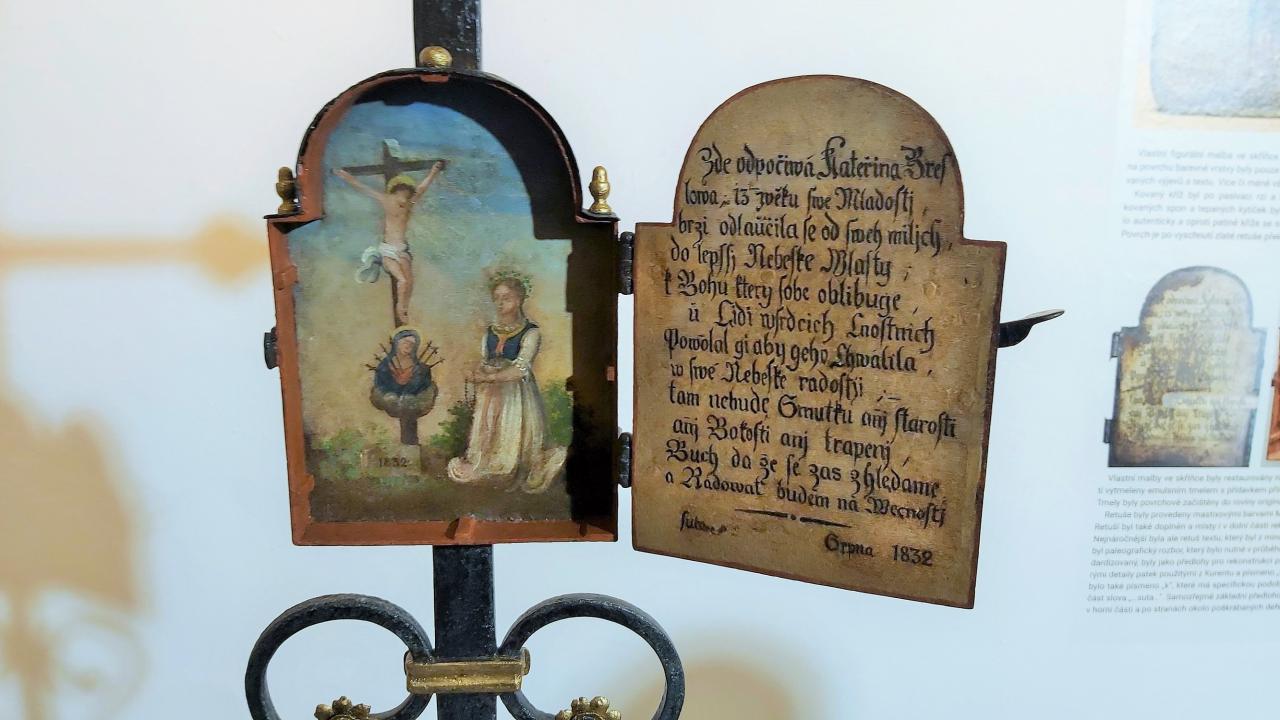 1832
Zde odpočiwá Kateřina Breſ
lowa, 13 zwěku ſwe Mladoſtj,
brzi odlaučila ſe od ſweh miljch,
do lepſſj Nebeſke Wlaſty,
k Bohu ktery ſobe oblibuge,
ü Lidi wſrdcich Cnoſtnich
Powolal gi aby geho Chwálila,
w ſwé Nebeſke radoſtji,
tam nebude Smutku anj ſtaroſti
anj Boſoſti anj trapenj,
Buch da že ſe zas zhledame
a Radowat budem na Wecnoſtj
Srpna 1832
Vlastní figurální malba ve skříňce
na povrchu barevné vrstvy byly
Kovaný kříž byl po pasivaci rzi a
kovaných spon a tepaných kytiček
lo autenticky a oproti patině kříže se
Povrch je po vyschnutí zlaté retuše
Vlastní malby ve skříňce byly restaurovány
ti vytmeleny emulsním tmelem s přídavkem
Tmely byly povrchově začištěny do roviny
Retuše byly provedeny mastixovými barvami
Retuší byl také doplněn a místy i v dolní části
Nejnáročnější byla ale retuš textu, který byl z
byl paleografický rozbor, který bylo nutné v
dardizovaný, byly jako předlohy pro rekonstrukci
rými detaily patek použitými z Kurentu a písmeno
bylo také písmeno „k“, které má specifickou
část slova „...suta...“. Samozřejmě základní
v horní části a po stranách okolo poškrábaných